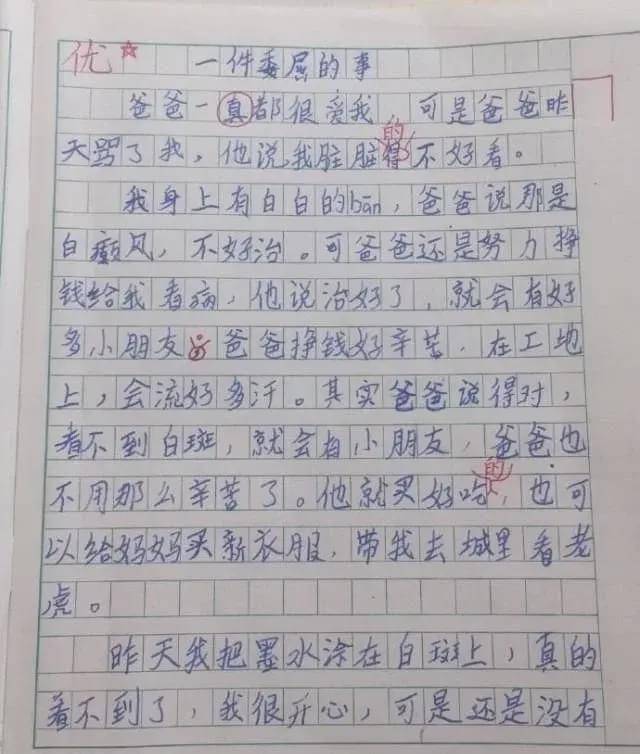 优
一件委屈的事
爸爸一真都很爱我 可是爸爸昨
的
天骂了我，他说我脏脏得不好看。
我身上有白白的bān，爸爸说那是
白癜风，不好治。可爸爸还是努力挣
钱给我看病，他说治好了，就会有好
多小朋友。爸爸挣钱好辛苦，在工地
上，会流好多汗。其实爸爸说得对，
看不到白斑，就会有小朋友，爸爸也
的
不用那么辛苦了。他就买好吃，也可
以给妈妈买新衣服，带我去城里看老
虎。
昨天我把墨水涂在白斑上，真的
看不到了，我很开心，可是还是没有